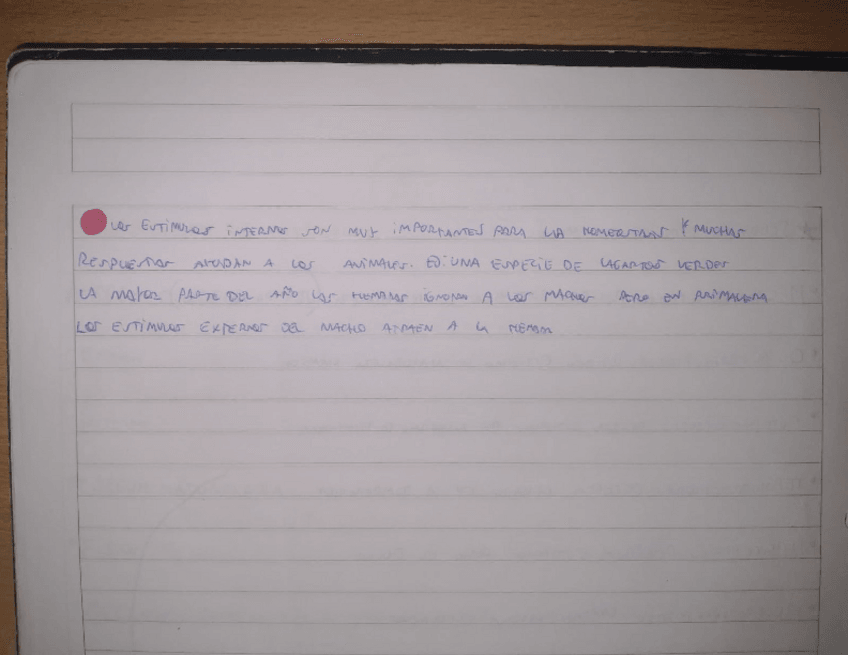 LOS ESTIMULOS INTERNOS SON MUY IMPORTANTES PARA LA HOMEOSTASIS Y MUCHAS
RESPUESTAS AYUDAN A LOS ANIMALES. EJ: UNA ESPECIE DE LAGARTOS VERDES
LA MAYOR PARTE DEL AÑO LAS HEMBRAS IGNORAN A LOS MACHOS PERO EN PRIMAVERA
LOS ESTIMULOS EXTERNOS DEL MACHO ATRAEN A LA HEMBRA